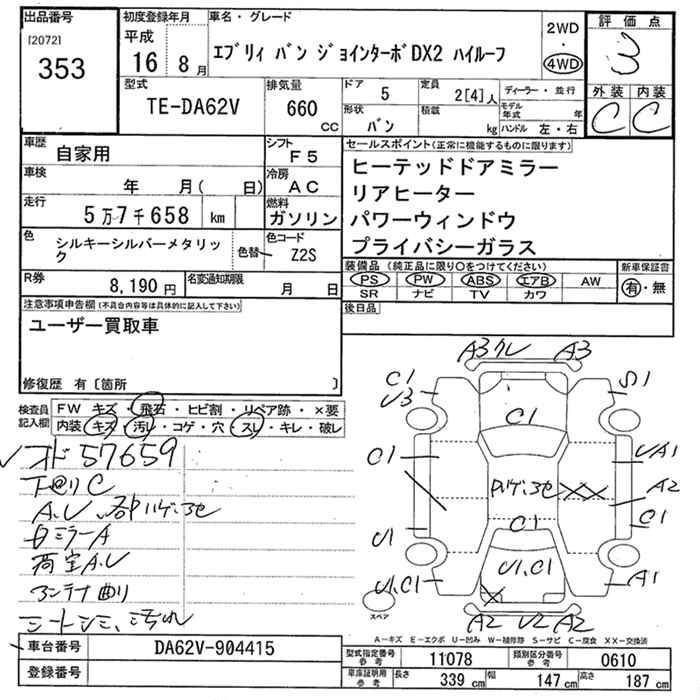 出品番号
[2072]
353
初度登録年月
平成
16 8月
車名・グレード
エブリィ バン ジョインターボDX2 ハイルーフ
2WD
・
4WD
評価点
3
外装 内装
C C
型式
TE-DA62V
排気量
660 cc
ドア
5
定員
2[4]人
形状
バン
積載
kg
ディーラー・並行
モデル年式 年
ハンドル 左・右
車歴
自家用
シフト
F5
車検
年 月( 日)
冷房
AC
走行
5万7千658 km
燃料
ガソリン
色
シルキーシルバーメタリック
色替
色コード
Z2S
R券
8,190円
名変通知期限
月 日
セールスポイント(正常に機能するものに限ります)
ヒーテッドドアミラー
リアヒーター
パワーウィンドウ
プライバシーガラス
装備品(純正品に限り○をつけてください)
PS PW ABS エアB AW
SR ナビ TV カワ
新車保証書
有・無
後日品
注意事項申告欄(不具合内容等は具体的に記入して下さい)
ユーザー買取車
修復歴 有〔箇所 〕
検査員記入欄
FW キズ・飛石・ヒビ割・リペア跡・×要
内装 キズ・汚レ・コゲ・穴・スレ・キレ・破レ
オド57659
下回りC
A.U、各部ハゲ、3セ
ミラーA
荷室A.U
アンテナ曲り
シートシミ、汚れ
A3 クレ A3
C1
U3
S1
C1
C1
UA1
A2
C1
ハゲ、3セ
C1
U1
U1.C1
U1,C1
A1
スペア
A2 U2 A2
A-キズ E-エクボ U-凹み W-補修跡 S-サビ C-腐食 XX-交換済
車台番号
DA62V-904415
登録番号
型式指定番号 参考
11078
類別区分番号 参考
0610
車庫証明用 参考
長さ 339 cm 幅 147 cm 高さ 187 cm